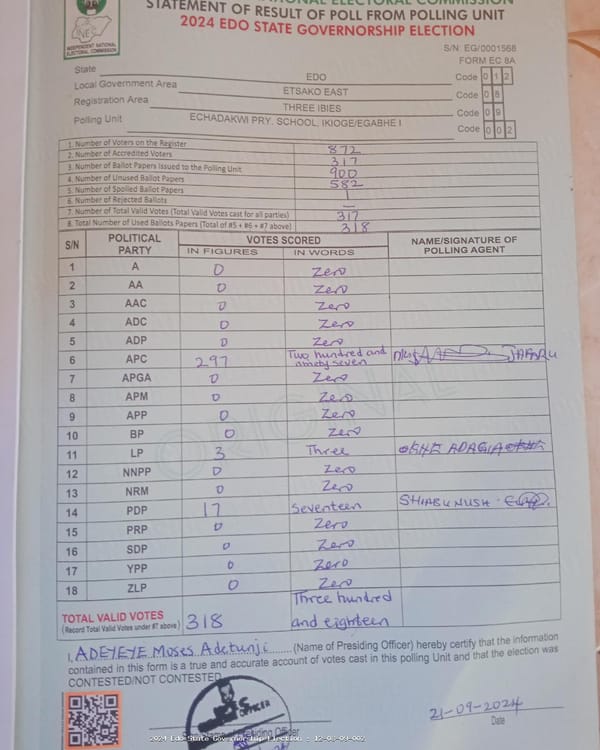 STATEMENT OF RESULT OF POLL FROM POLLING UNIT
2024 EDO STATE GOVERNORSHIP ELECTION
INDEPENDENT NATIONAL ELECTORAL COMMISSION
S/N: EG/0001568
FORM EC 8A
State EDO Code 0 1 2
Local Government Area ETSAKO EAST Code 0 8
Registration Area THREE IBIES Code 0 9
Polling Unit ECHADAKWI PRY. SCHOOL, IKIOGE/EGABHE I Code 0 0 2
1. Number of Voters on the Register 872
2. Number of Accredited Voters 317
3. Number of Ballot Papers Issued to the Polling Unit 900
4. Number of Unused Ballot Papers 582
5. Number of Spoiled Ballot Papers 1
6. Number of Rejected Ballots —
7. Number of Total Valid Votes (Total Valid Votes cast for all parties) 317
8. Total Number of Used Ballots Papers (Total of #5 + #6 + #7 above) 318
S/N POLITICAL PARTY VOTES SCORED NAME/SIGNATURE OF POLLING AGENT
IN FIGURES IN WORDS
1 A 0 Zero
2 AA 0 Zero
3 AAC 0 Zero
4 ADC 0 Zero
5 ADP 0 Zero
6 APC 297 Two hundred and ninety seven
7 APGA 0 Zero
8 APM 0 Zero
9 APP 0 Zero
10 BP 0 Zero
11 LP 3 Three
12 NNPP 0 Zero
13 NRM 0 Zero
14 PDP 17 Seventeen
15 PRP 0 Zero
16 SDP 0 Zero
17 YPP 0 Zero
18 ZLP 0 Zero
TOTAL VALID VOTES 318 Three hundred and eighteen
(Record Total Valid Votes under #7 above)
ORIGINAL
I, ADEYEYE Moses Adetunji (Name of Presiding Officer) hereby certify that the information
contained in this form is a true and accurate account of votes cast in this polling Unit and that the election was
CONTESTED/NOT CONTESTED
21-09-2024
Date
2024 Edo State Governorship Election - 12-08-09-002